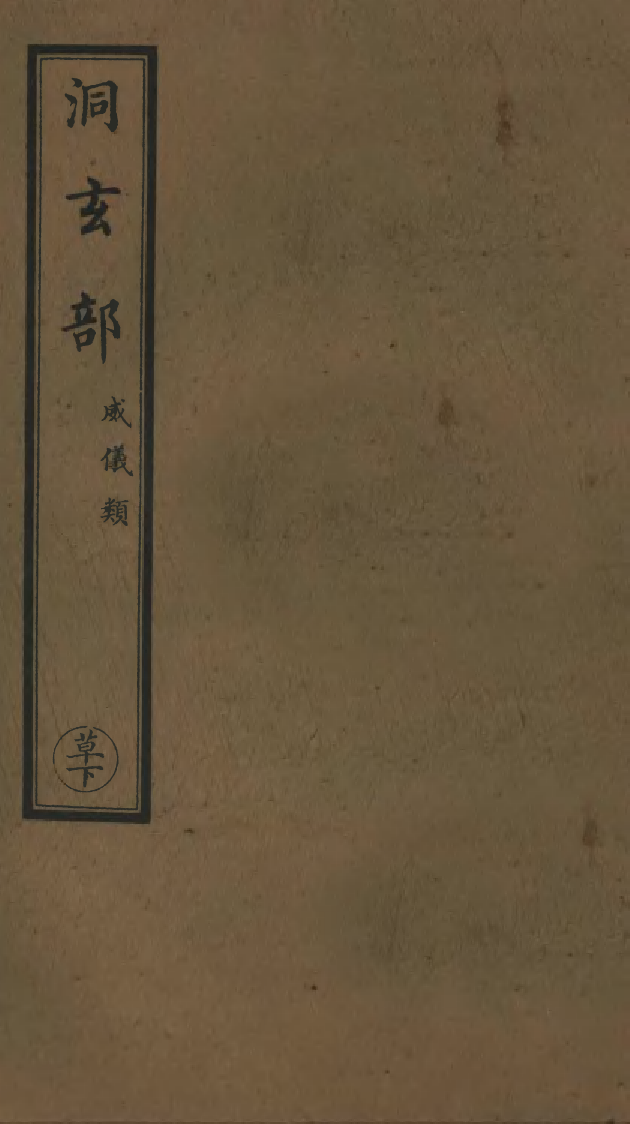 洞玄部
威儀類
草下